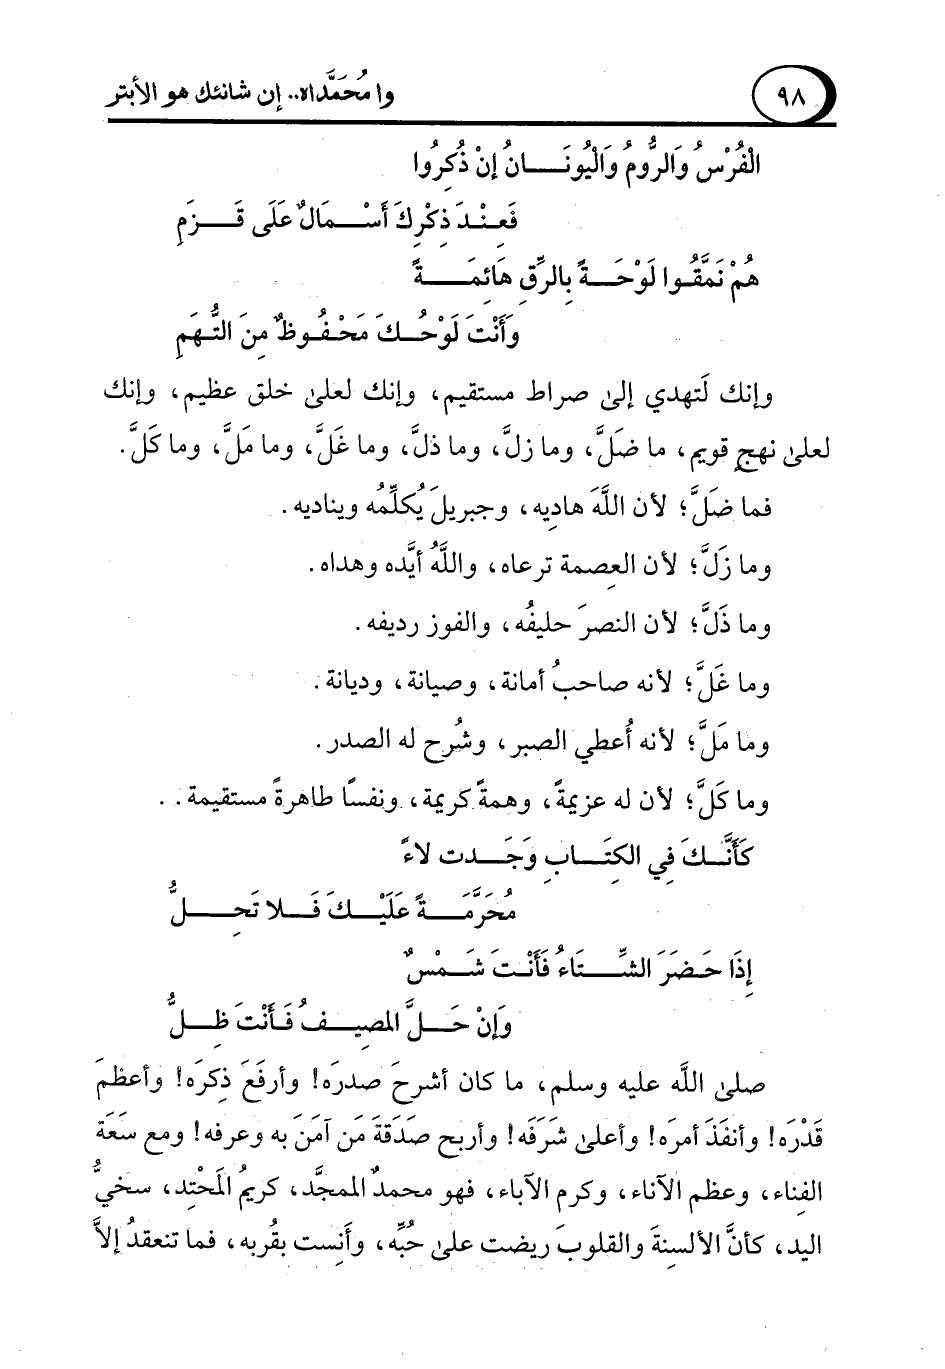 ٩٨
وا مُحَمَّداه.. إن شانئك هو الأبتر
الْفُرْسُ وَالرُّومُ وَالْيُونَــانُ إنْ ذُكِرُوا
فَعِنْـدَ ذِكْرِكَ أَسْـمَالٌ عَلَى قَـزَمِ
هُمْ نَمَّقُـوا لَوْحَـةً بِالرِّقِ هَائِمَـــةً
وَأَنْتَ لَوْحُـكَ مَحْفُـوظٌ مِنَ التُّهَمِ
وإنك لَتهدي إلى صراط مستقيم، وإنك لعلى خلق عظيم، وإنك
لعلى نهجٍ قويم، ما ضَلَّ، وما زلَّ، وما ذلَّ، وما غَلَّ، وما مَلَّ، وما كَلَّ.
فما ضَلَّ؛ لأن اللَّهَ هادِيه، وجبريلَ يُكلِّمُه ويناديه.
وما زَلَّ؛ لأن العِصمة ترعاه، واللَّهُ أيَّده وهداه.
وما ذَلَّ؛ لأن النصرَ حليفُه، والفوز رديفه.
وما غَلَّ؛ لأنه صاحبُ أمانة، وصيانة، وديانة.
وما مَلَّ؛ لأنه أُعطي الصبر، وشُرح له الصدر.
وما كَلَّ؛ لأن له عزيمةً، وهمةً كريمة، ونفسًا طاهرةً مستقيمة..
كَأَنَّـكَ فِي الكِتَـابِ وَجَـدتِ لاءً
مُحَرَّمَـةً عَلَيْـكَ فَـلا تَحِـلُّ
إِذَا حَـضَرَ الشِّـتَاءُ فَأَنْـتَ شَـمْسٌ
وَإِنْ حَـلَّ المَصِيـفُ فَـأَنْتَ ظِـلُّ
صلى اللَّه عليه وسلم، ما كان أشرحَ صدرَه! وأرفَعَ ذِكرَه! وأعظمَ
قَدْرَه! وأنفَذَ أمرَه! وأعلى شَرَفَه! وأربح صَدَقةَ مَن آمَنَ به وعرفه! ومع سَعَة
الفِناء، وعظم الآناء، وكرم الآباء، فهو محمدٌ الممجَّد، كريمُ المَحْتِد، سخيُّ
اليد، كأنَّ الألسنةَ والقلوبَ رِيضت على حُبِّه، وأَنِست بقُربه، فما تنعقدُ إلاَّ